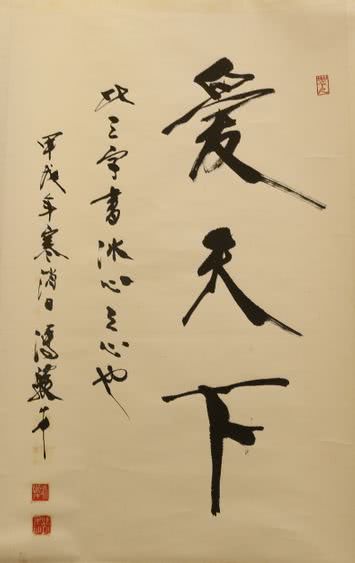 愛天下
此三字書冰心之心也
甲戌年寒消日馮驥才